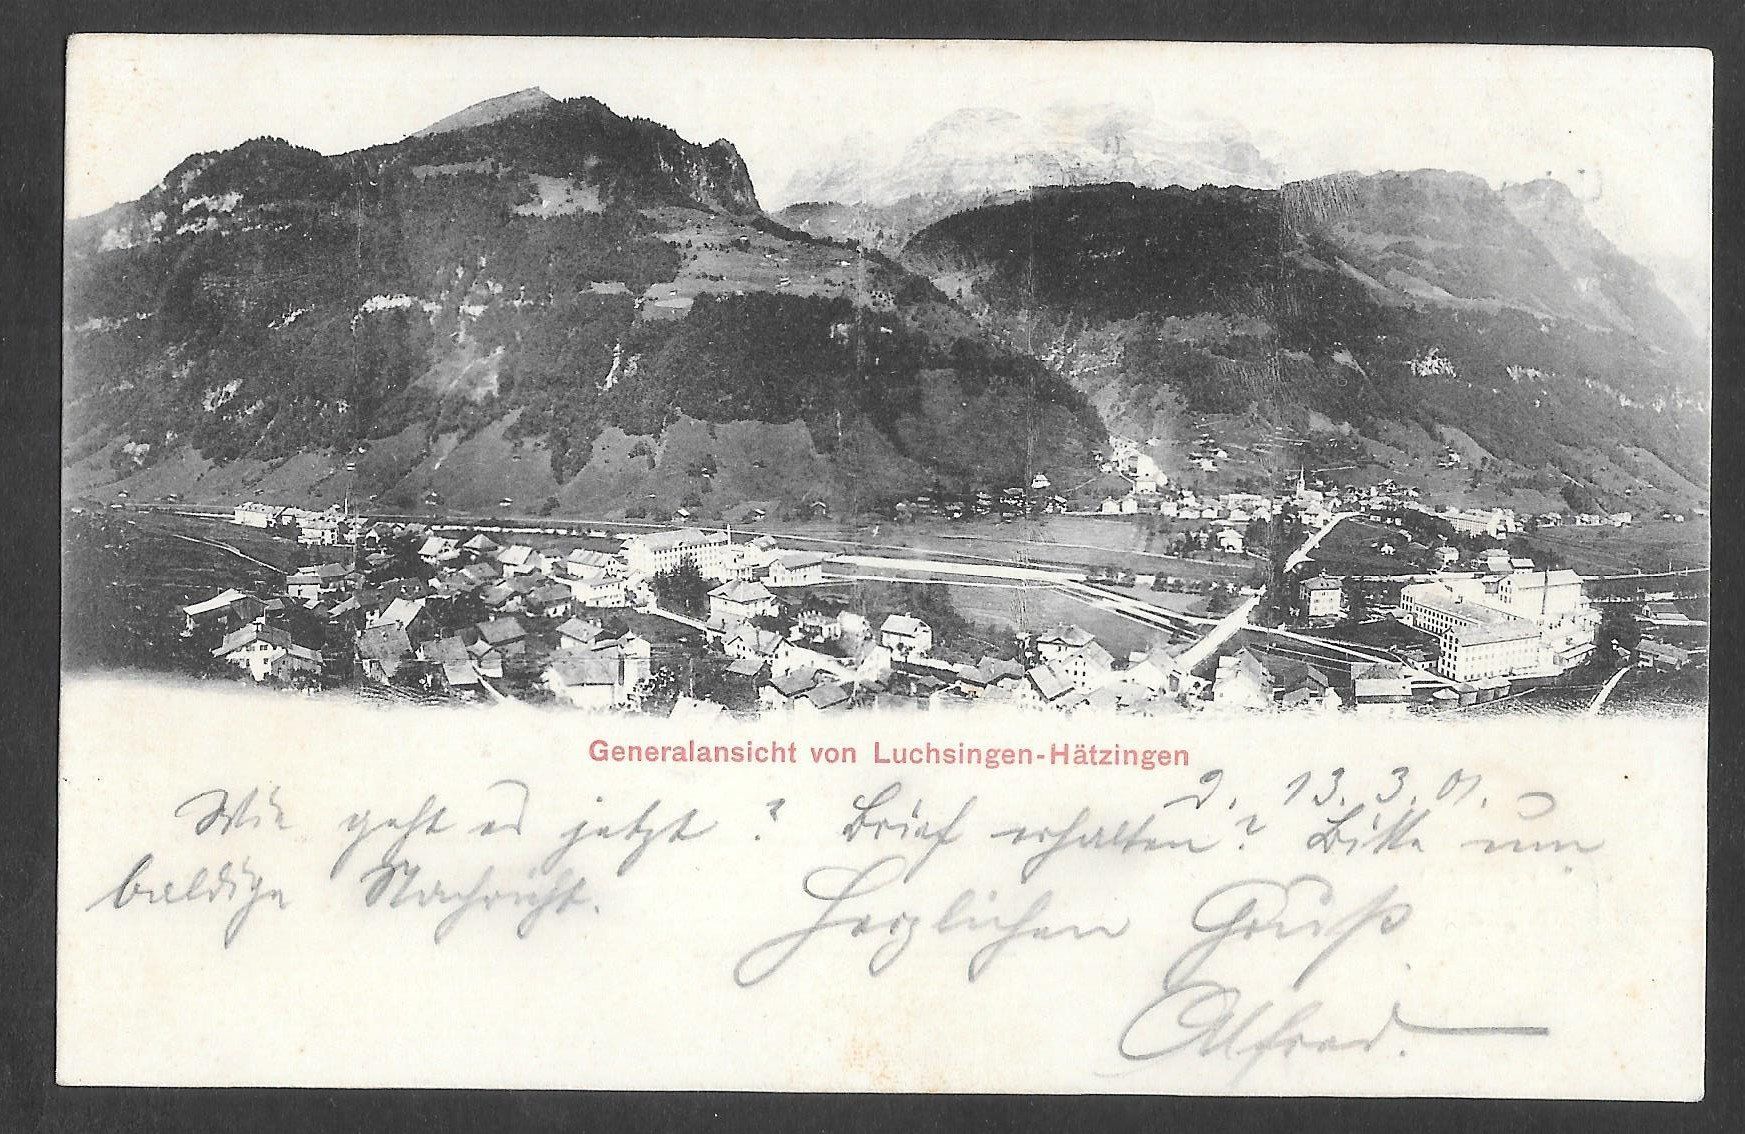 Generalansicht von Luchsingen-Hätzingen
d. 13. 3. 01.
Wie geht es jetzt? Brief erhalten? Bitte um
baldige Nachricht. Herzlichen Gruß
Alfred.